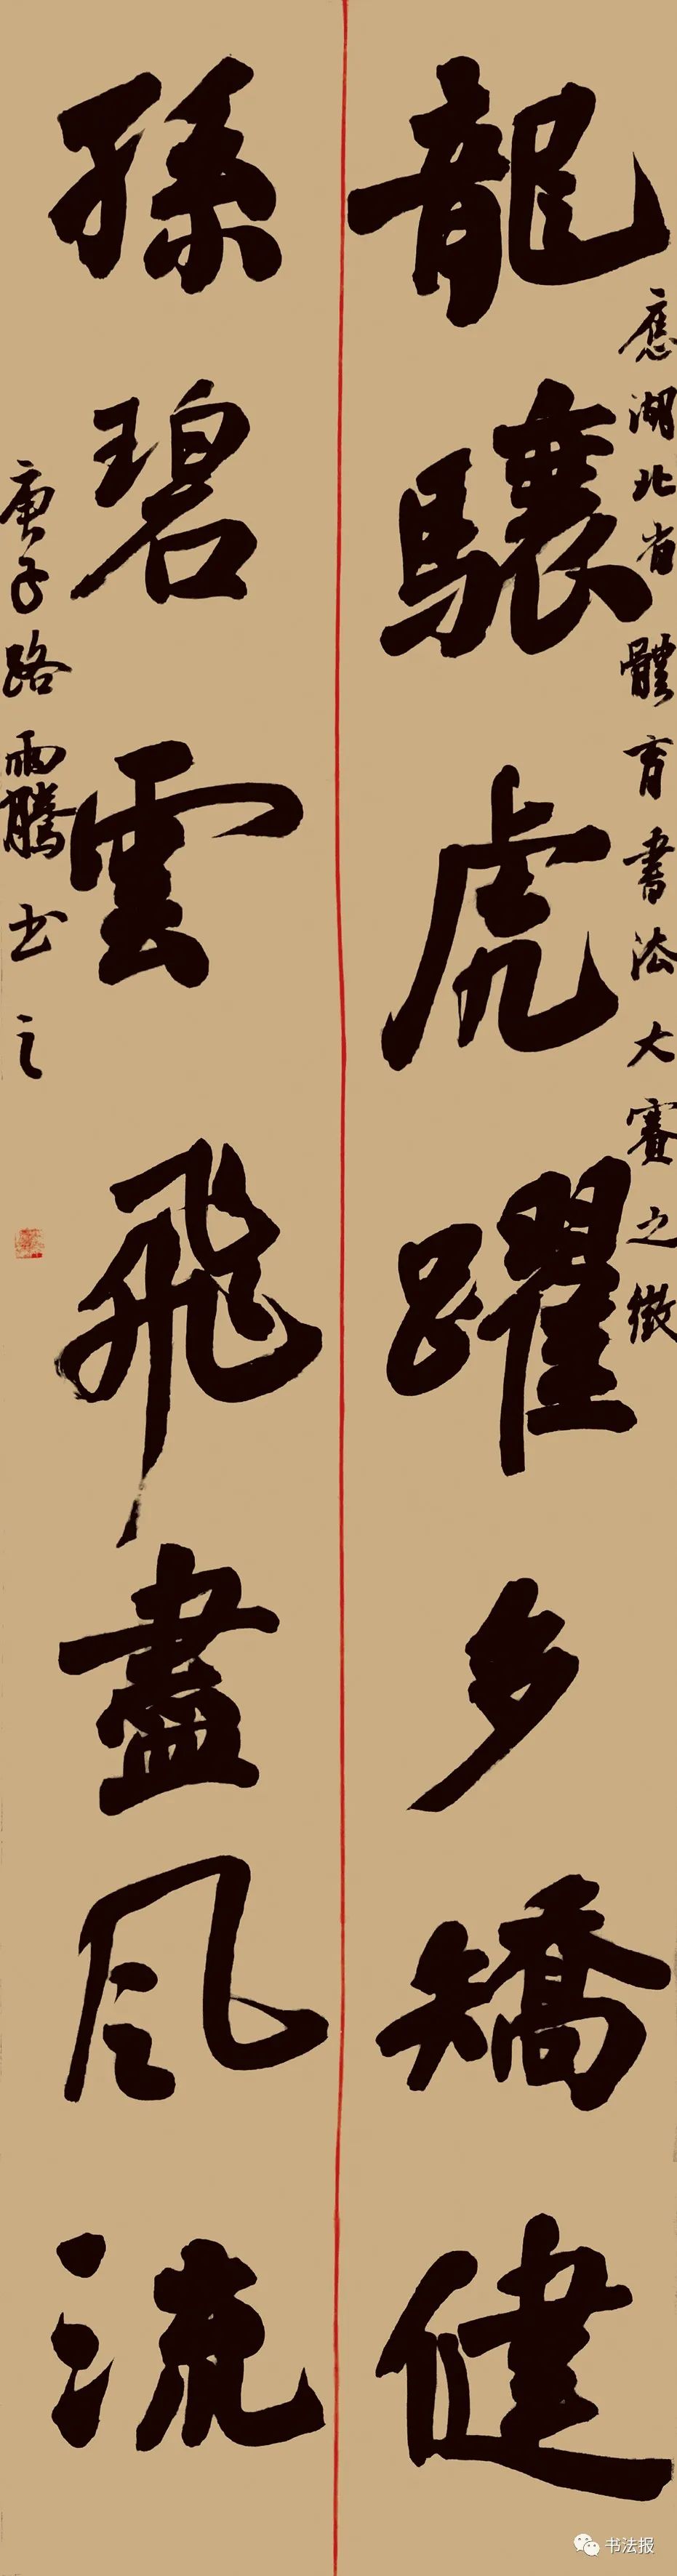 龍驤虎躍多矯健
應湖北省體育書法大賽之徵
孫碧雲飛盡風流
庚子路雨騰書之
书法报